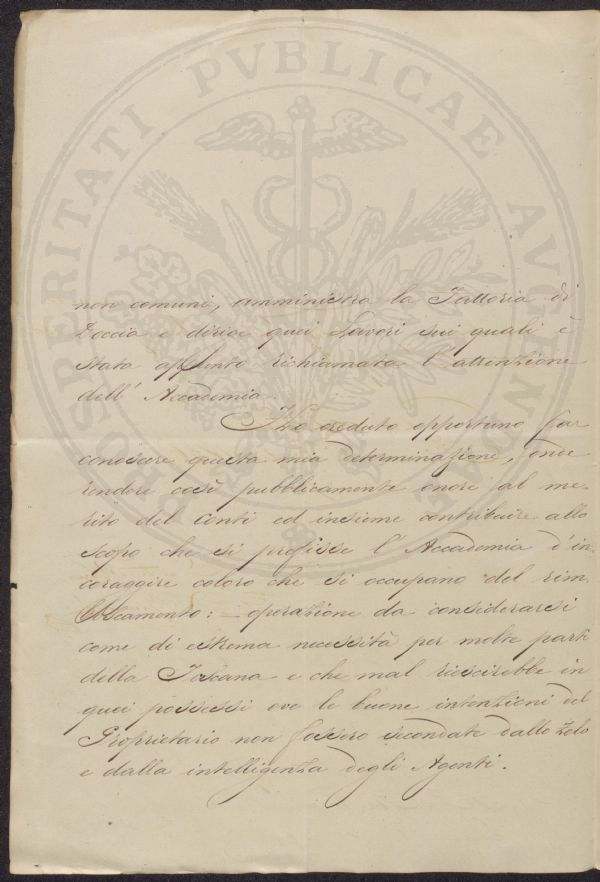 PROSPERITATI PVBLICAE AVGENDAE
non comuni, amministra la Fattoria di
Doccia e dirige quei Lavori sui quali è
stata appunto richiamata l'attenzione
dell' Accademia.
Ho creduto opportuno far
conoscere questa mia determinazione, onde
rendere così pubblicamente onore al me-
rito del Conti ed insieme contribuire allo
scopo che si prefisse l'Accademia d'in-
coraggire coloro che si occupano del rim-
boscamento: — operazione da considerarsi
come di estrema necessità per molte parti
della Toscana e che mal riescirebbe in
quei possessi ove le buone intenzioni del
Proprietario non fossero secondate dallo zelo
e dalla intelligenza degli Agenti.